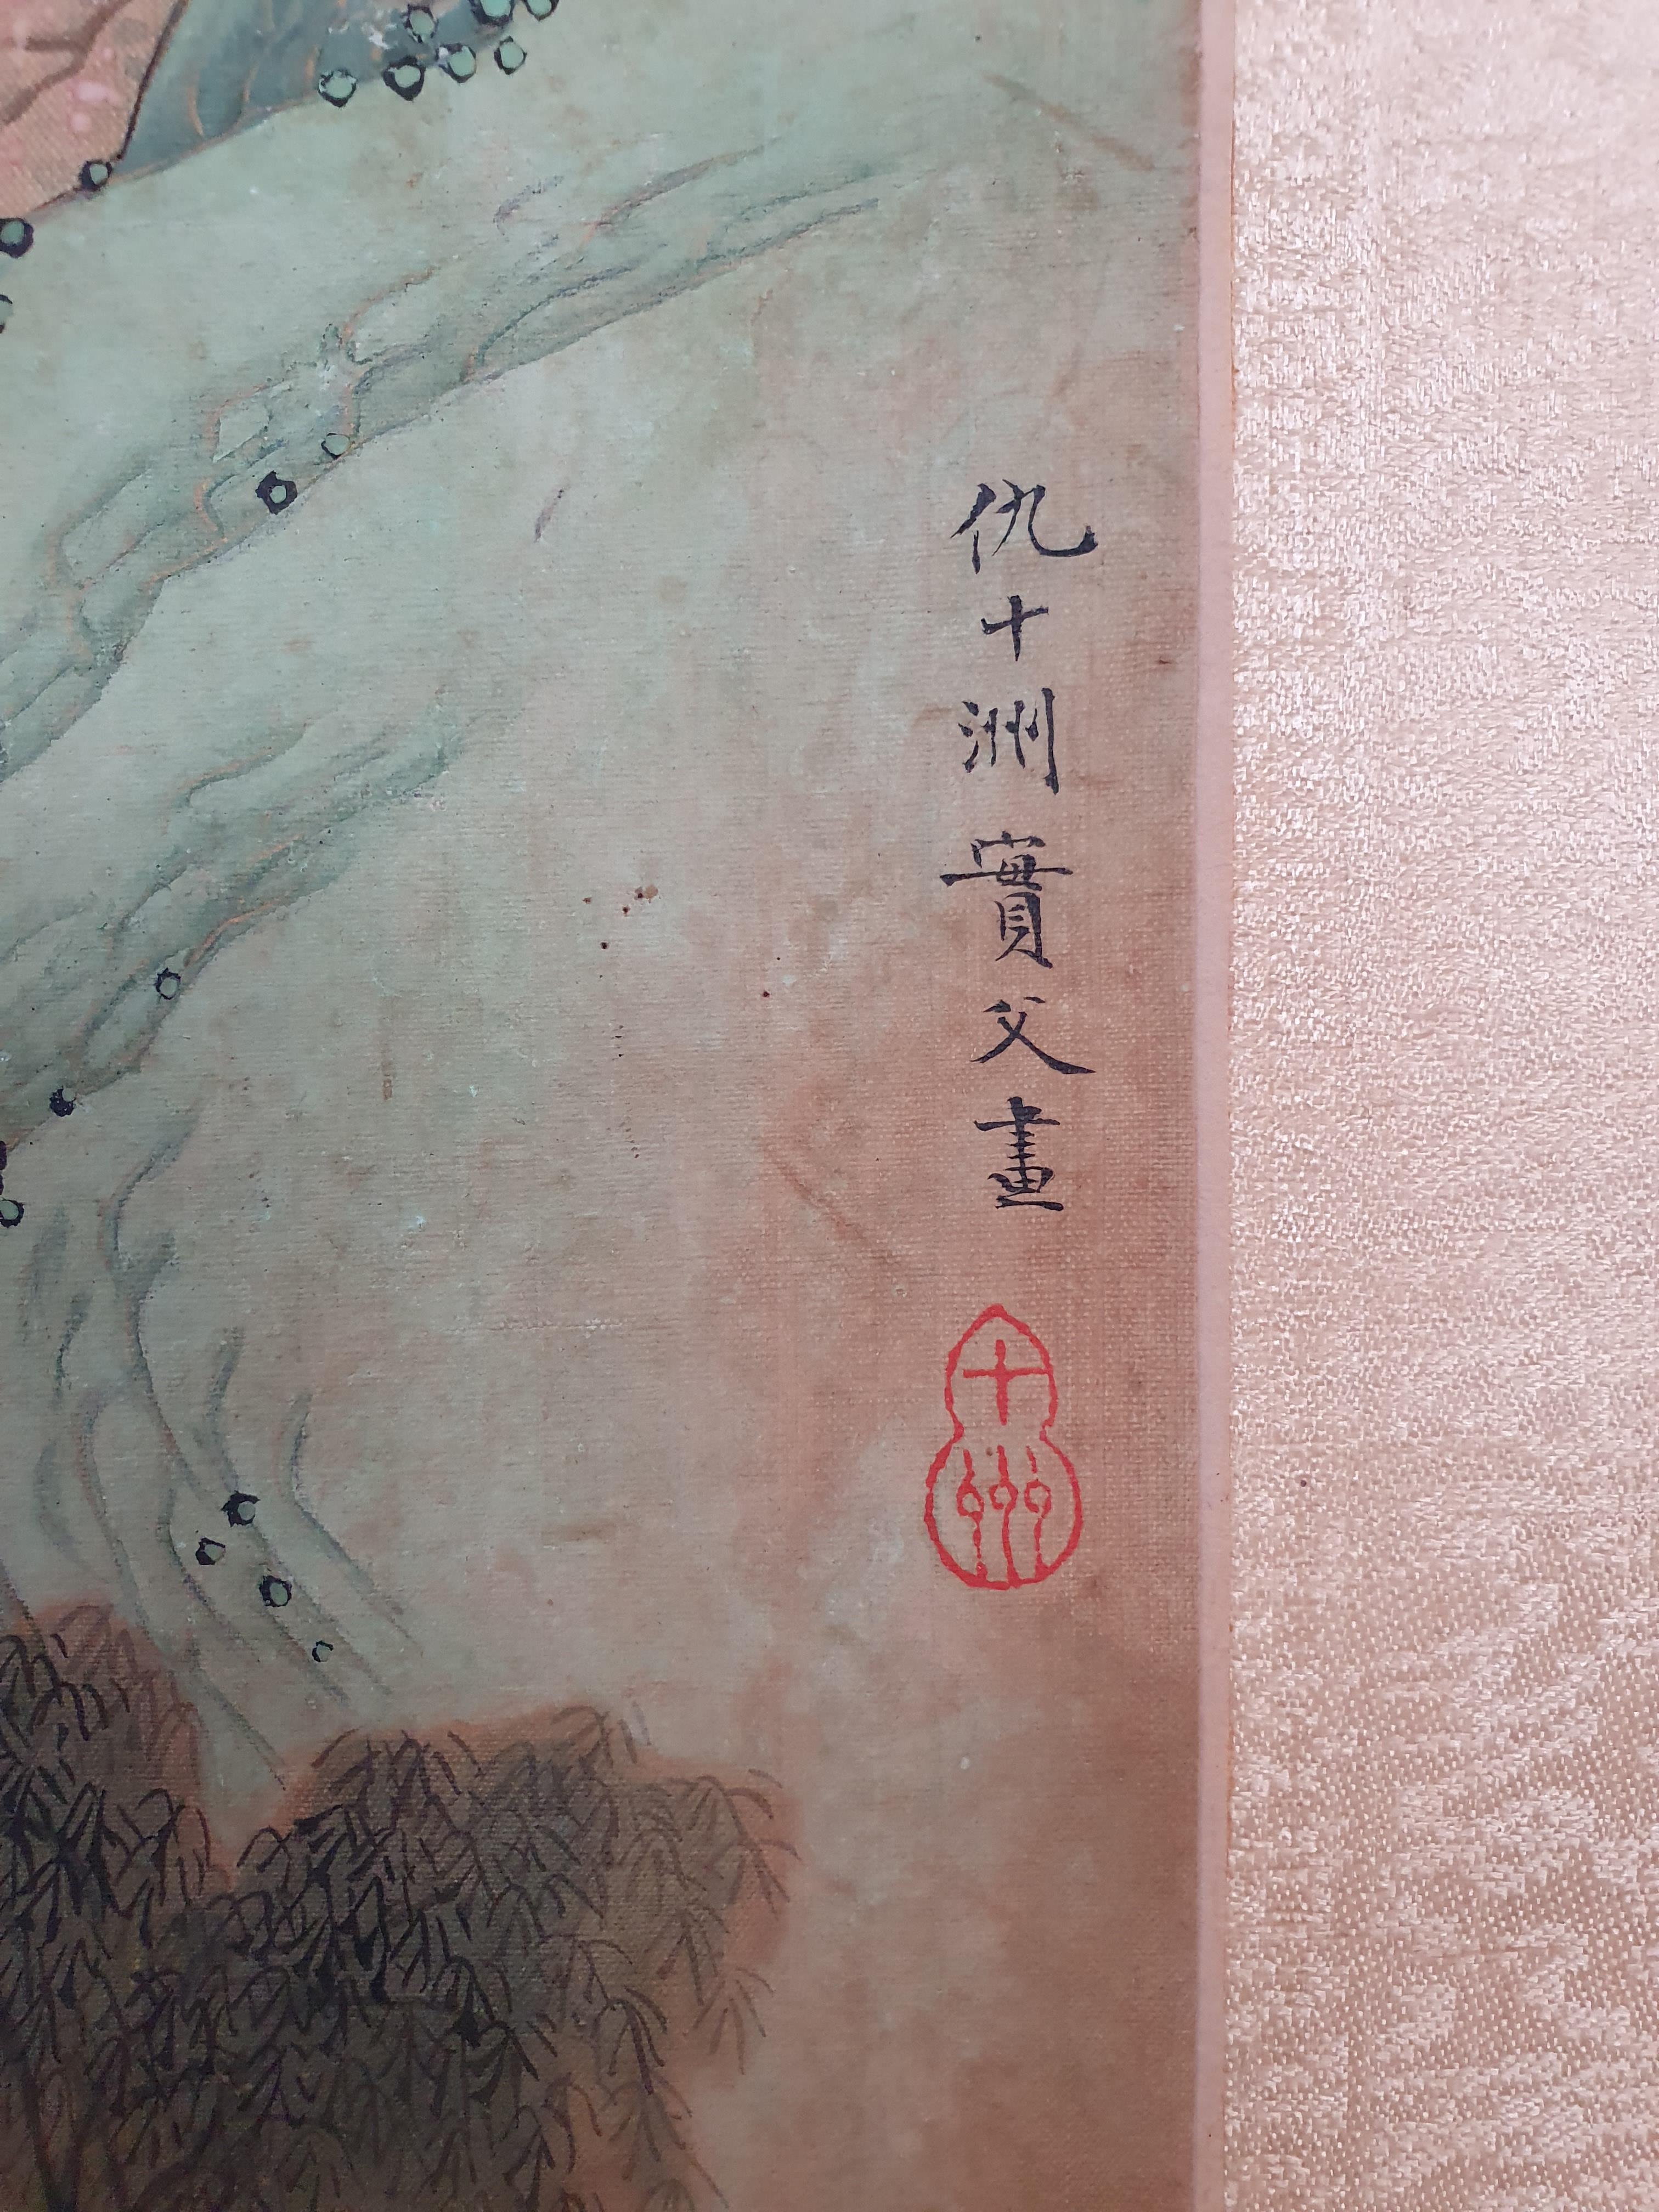 仇十洲實父畫
十州